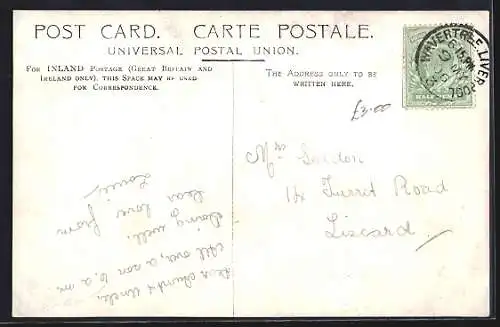 POST CARD. CARTE POSTALE.
UNIVERSAL POSTAL UNION.
FOR INLAND POSTAGE (GREAT BRITAIN AND
IRELAND ONLY), THIS SPACE MAY BE USED
FOR CORRESPONDENCE.
THE ADDRESS ONLY TO BE
WRITTEN HERE.
WAVERTREE. LIVERPOOL
£3.00
14 Turret Road
Liscard.
Dear Aunt & Uncle,
All over, a son 6. a.m.
Doing well.
Dear love from
Louie